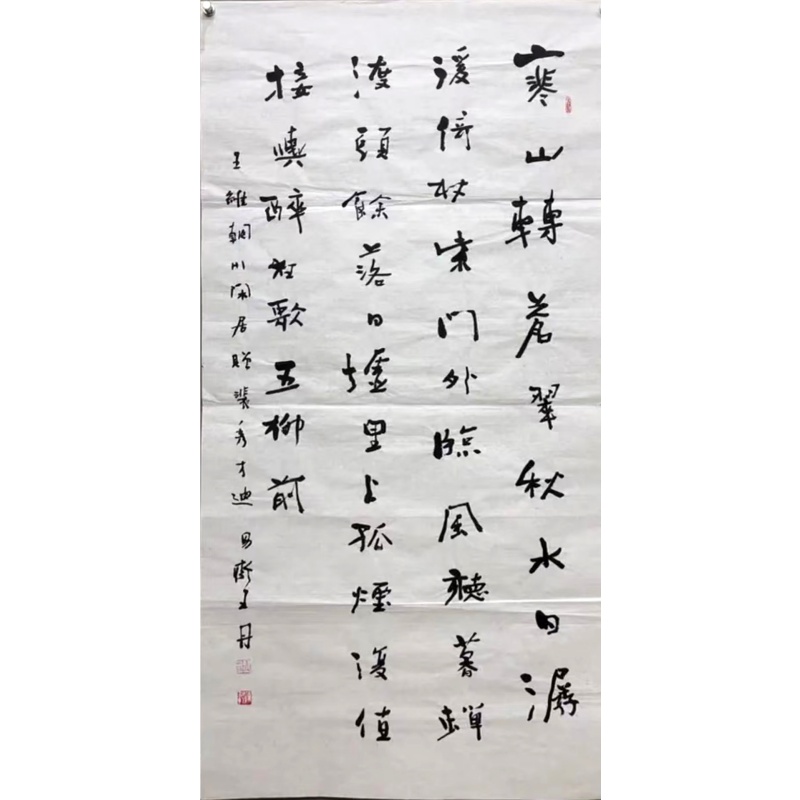 寒山轉蒼翠秋水日潺
湲倚杖柴門外臨風聽暮蟬
渡頭餘落日墟里上孤煙復值
接輿醉狂歌五柳前
王維輞川閑居贈裴秀才迪